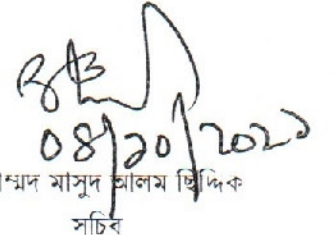 ০৪/১০/২০২১
ম্মদ মাসুদ আলম ছিদ্দিক
সচিব